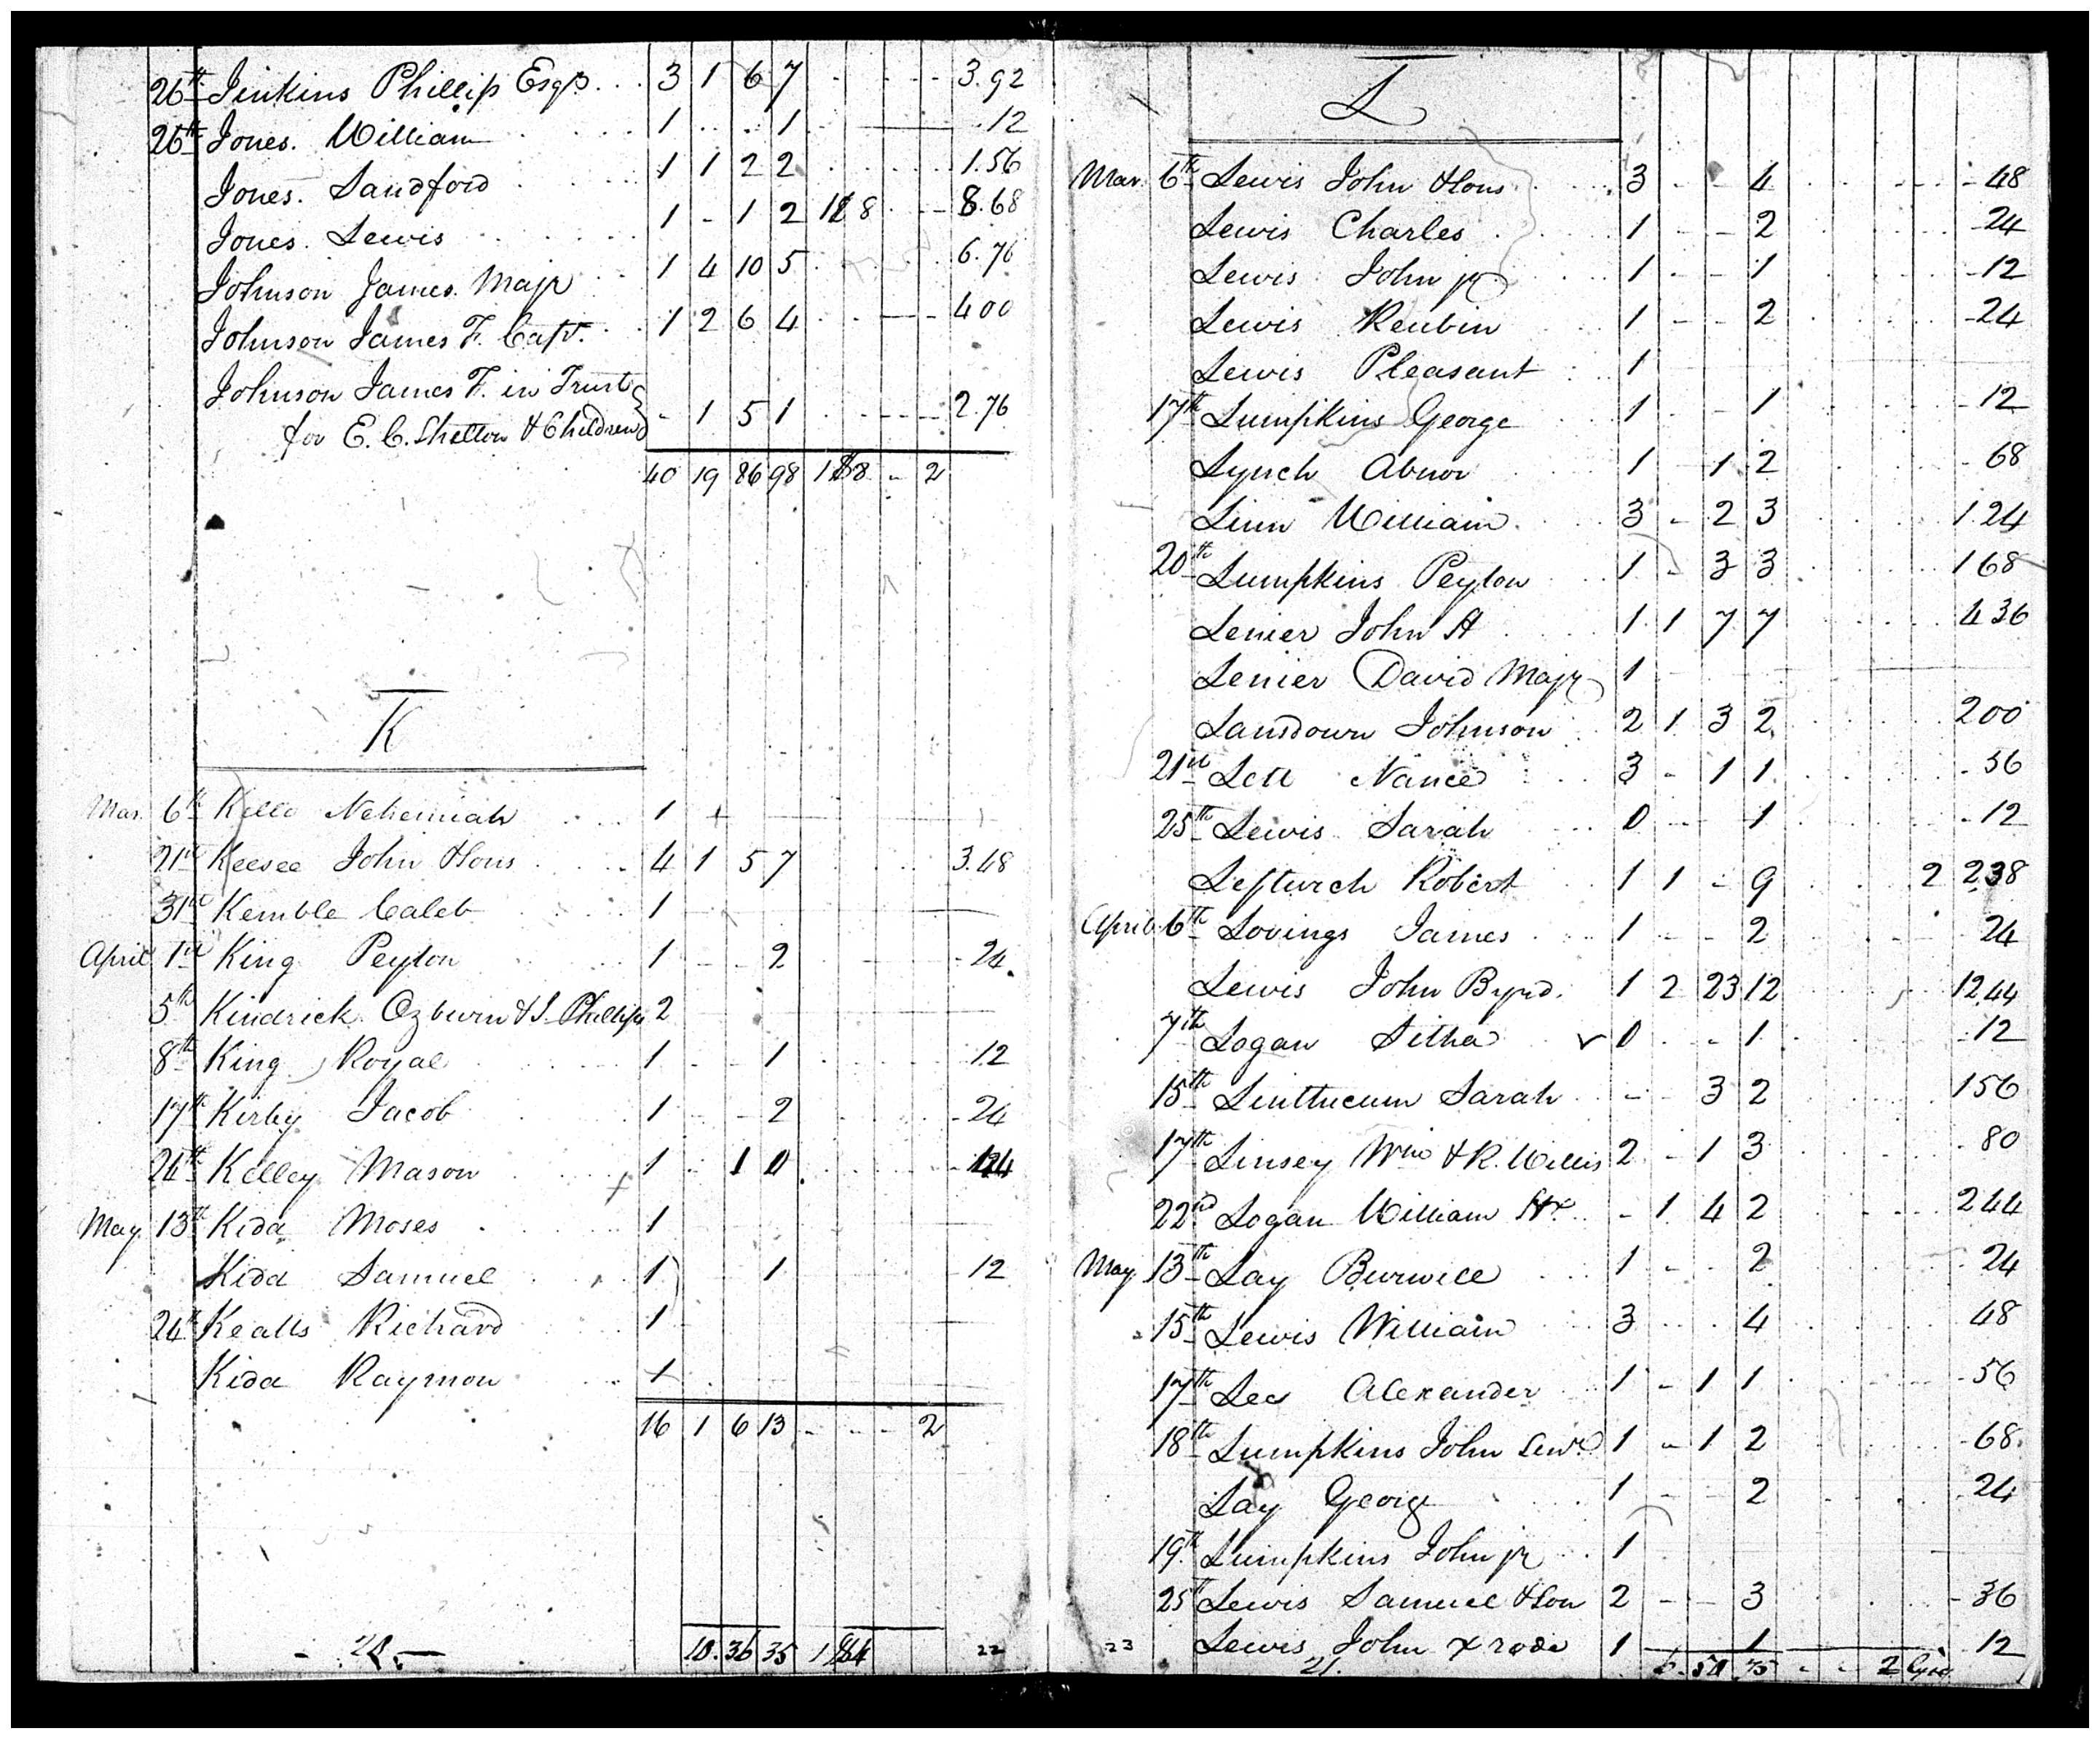 26th Jinkins Phillip Esqr. 3 1 6 7 - - - - 3.92
26th Jones. William 1 1 .12
Jones. Sandford 1 1 2 2 1.56
Jones. Lewis 1 - 1 2 8.68
Johnson James. Majr 1 4 10 5 6.76
Johnson James F. Capt. 1 2 6 4 - - 4 00
Johnson James F. in Trust
for E. C. Shelton & Children - 1 5 1 - - - 2.76
40 19 86 98 - 2
K
Mar. 6th Kello Nehemiah 1
21st Keesee John & Sons 4 1 5 7 3.48
31st Kemble Caleb 1
April 1st King Peyton 1 - - 2 - 24
5th Kindrick Ozburn & S. Phillips 2
8th King Royal 1 - 1 12
17th Kirby Jacob 1 - - 2 - 24
24th Kelley Mason 1 - 1 0 44
May 13th Kidd Moses 1
Kidd Samuel 1 1 12
24th Keatts Richard 1
Kidd Raymon 1
16 1 6 13 - - - 2
10. 36 35
22
L
Mar. 6th Lewis John & Sons 3 - - 4 - 48
Lewis Charles 1 - - 2 - 24
Lewis John jr 1 - - 1 - 12
Lewis Reubin 1 - - 2 - 24
Lewis Pleasant 1
17th Lumpkins George 1 - - 1 - 12
Lynch Abner 1 - 1 2 - 68
Linn William 3 - 2 3 1.24
20th Lumpkins Peyton 1 - 3 3 1 68
Lenier John H 1 1 7 7 4 36
Lenier David Majr 1
Lansdown Johnson 2 1 3 2 2 00
21st Lett Nance 3 - 1 1 - 56
25th Lewis Sarah 0 - 1 - 12
Leftwich Robert 1 1 - 9 2 2 38
April 6th Lovings James 1 - - 2 24
Lewis John Byrd. 1 2 23 12 12.44
7th Logan Sitha 0 - 1 - 12
15th Linthicum Sarah - - 3 2 1 56
17th Linsey Wm & R. Willis 2 - 1 3 - 80
22nd Logan William - 1 4 2 2 44
May 13th Lay Burwell 1 - - 2 24
15th Lewis William 3 4 48
17th Lee Alexander 1 - 1 1 - 56
18th Lumpkins John 1 - 1 2 - 68
Lay George 1 - - 2 24
19th Lumpkins John jr 1
25th Lewis Samuel & Son 2 - - 3 - 36
23 Lewis John x rode 1 1 12
21.